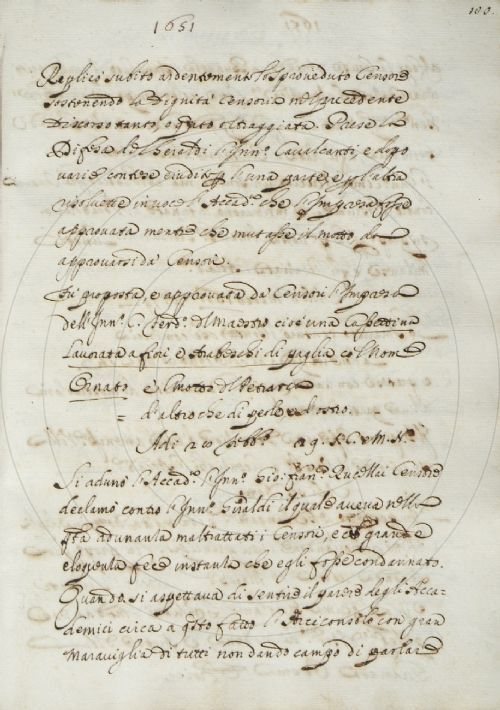 1651
188.
Replicò subito ardentemente lo sproveduto Censore
sostenendo la Dignità Censoria nel precedente
Discorso tanto oltraggiata. Prese la
Difesa del Gherardi l'Inn.º Cavalcanti, e dopo
varie contese erudite p l'una parte e p l'altra
risoluette in voce l'Accad.ª che l'Impresa fosse
approvata mentre che mutasse il motto da
approvarsi da Censori.
Fu proposta, e approvata da Censori l'Impresa
dell'Inn.º C. Ferd.º del Maestro cioè una Cassettina
Laurata a fiori, e Arabeschi di paglia col Nome
Ornato e il motto del Petrarca
= d'altro che di perle e d'ostro.
Adi 20 a g. S. C. e M. N.
Si adunò l'Accad.ª l'Inn.º Gio: Fran.º Rucellai Censore
declamò contro l'Inn.º Giraldi il quale aveva nella
pta adunanza maltrattati i Censori, e con grande
eloquenza fece instanza che egli fosse condannato.
Quando si aspettava di sentire il parere degli Acca-
demici circa a qsto fatto l'Arciconsolo con gran
Maraviglia di tutti non dando campo di parlare